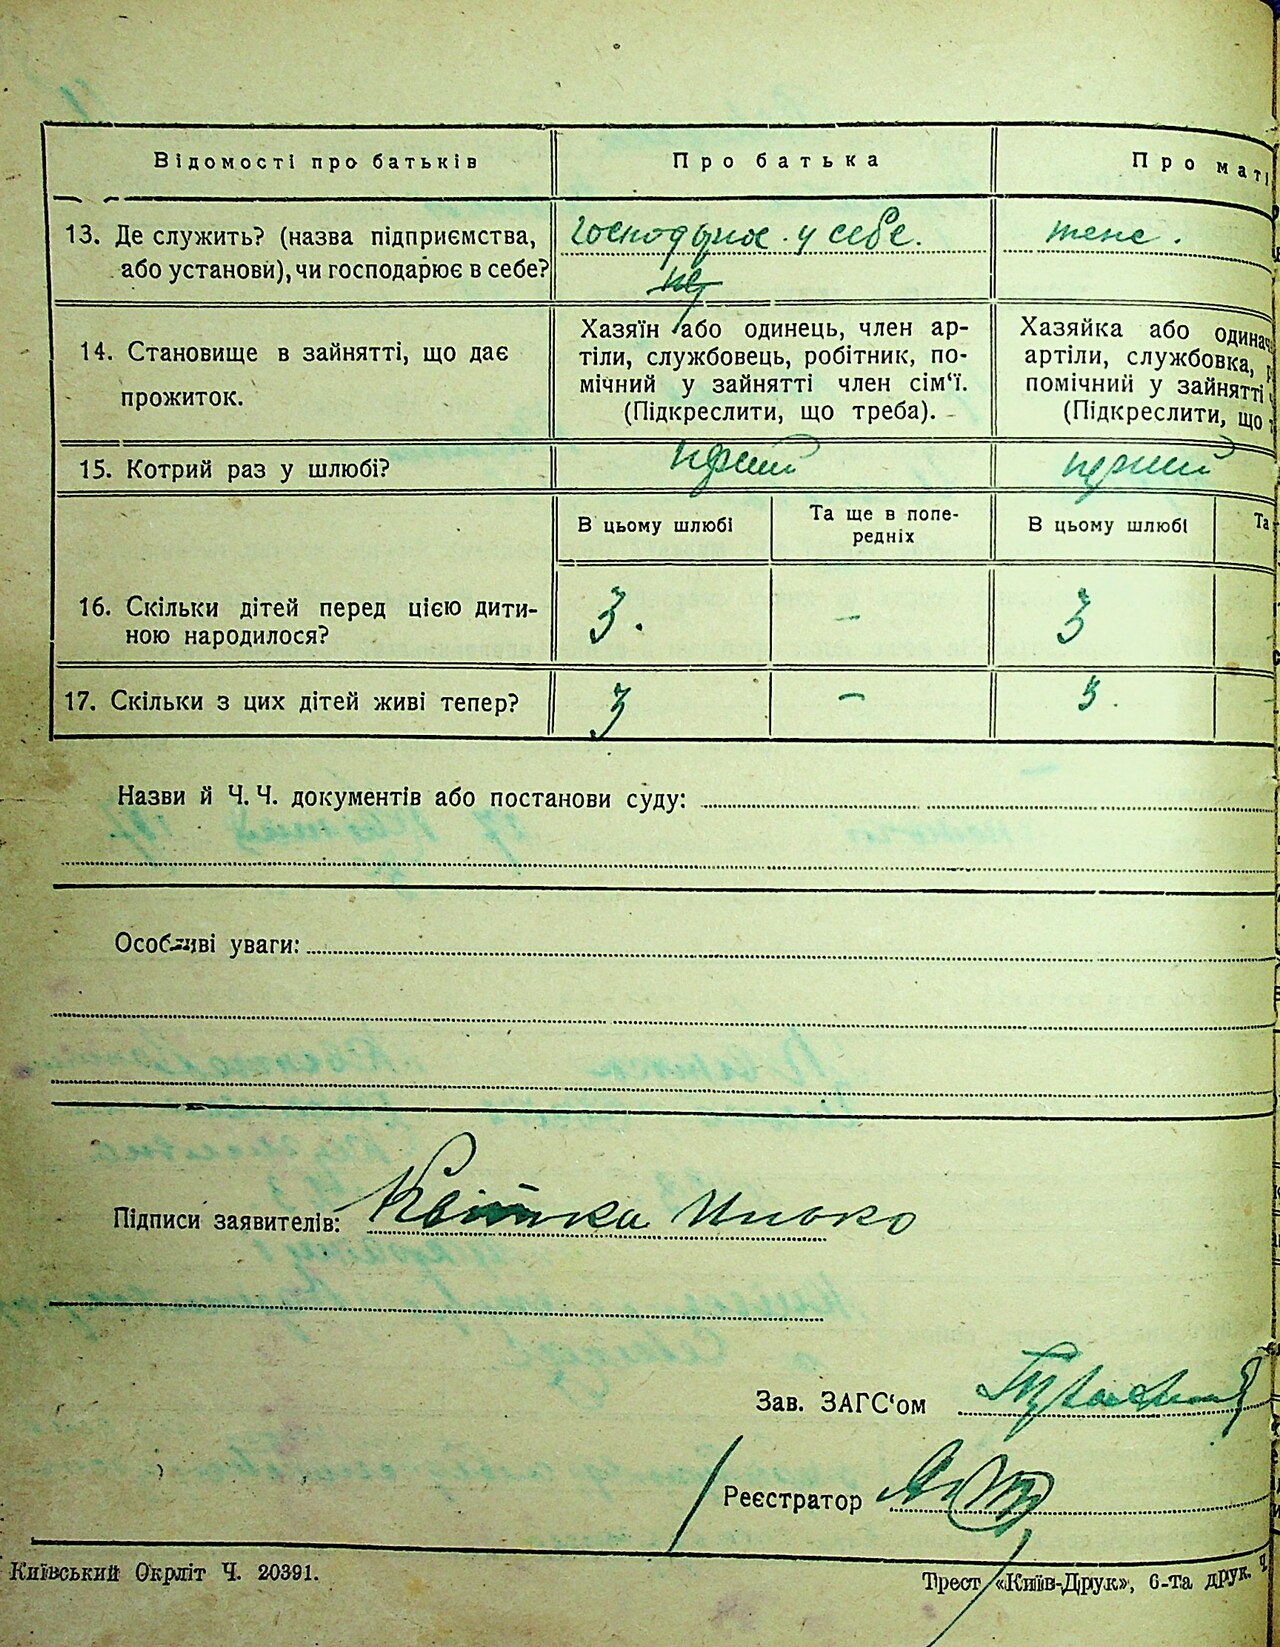 Відомості про батьків
Про батька
Про маті
13. Де служить? (назва підприємства,
або установи), чи господарює в себе?
господарює у себе.
теж.
14. Становище в зайнятті, що дає
прожиток.
Хазяїн або одинець, член ар-
тіли, службовець, робітник, по-
мічний у зайнятті член сім‘ї.
(Підкреслити, що треба).
Хазяйка або одинач
артіли, службовка, р
помічний у зайнятті ч
(Підкреслити, що т
15. Котрий раз у шлюбі?
перший
перший
В цьому шлюбі
Та ще в попе-
редніх
В цьому шлюбі
Та
16. Скільки дітей перед цією дити-
ною народилося?
3.
-
3
17. Скільки з цих дітей живі тепер?
3
-
3.
Назви й Ч. Ч. документів або постанови суду:
Особливі уваги:
Підписи заявителів: Квітка
Зав. ЗАГС‘ом
Реєстратор
Київський Окрліт Ч. 20391.
Трест «Київ-Друк», 6-та друк. Ч